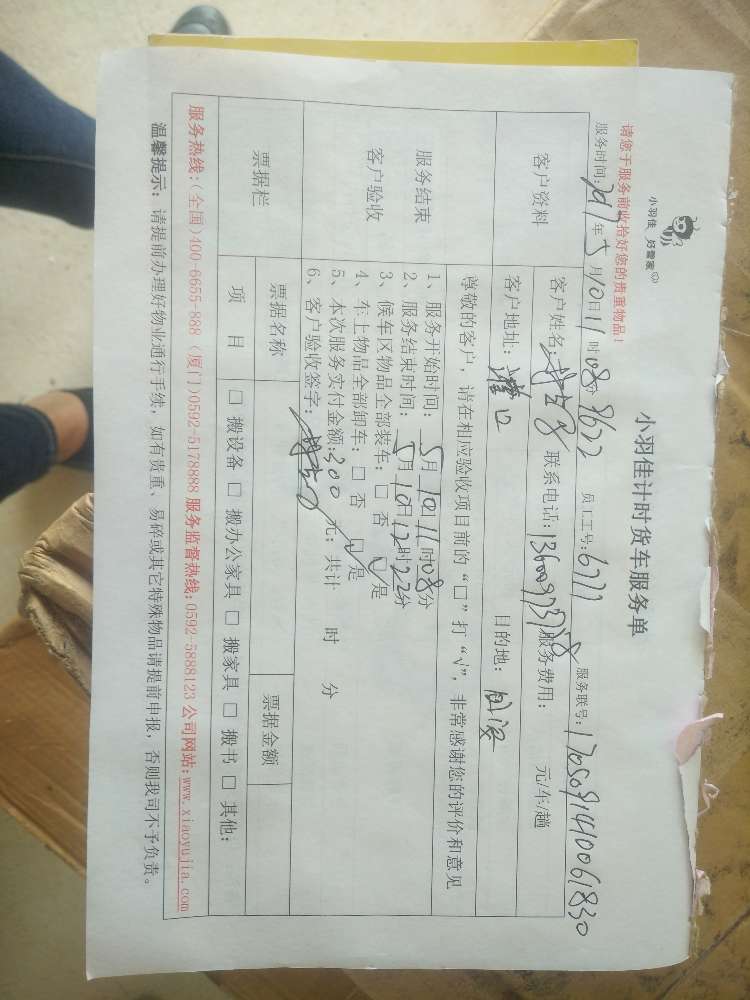 小羽佳 好管家
小羽佳计时货车服务单
请您于服务前收拾好您的贵重物品!
服务时间:2017年5月10日11时08分 8622 员工工号:6711 服务联号:17050914410061830
客户资料
客户姓名: 联系电话: 服务费用: 元/车/趟
客户地址:灌口 目的地:同安
服务结束
客户验收
尊敬的客户,请在相应验收项目前的“□”打“√”,非常感谢您的评价和意见
1、服务开始时间:5月10日11时08分
2、服务结束时间:5月10日12时22分
3、候车区物品全部装车:□ 否 □√是
4、车上物品全部卸车:□ 否 □√是
5、本次服务实付金额:300 元; 共计 时 分
6、客户验收签字:
票据栏
票据名称 票据金额
项 目 □ 搬设备 □ 搬办公家具 □ 搬家具 □ 搬书 □ 其他:
服务热线:(全国)400-6655-888 (厦门)0592-5178888 服务监督热线:0592-5888123 公司网站:www.xiaoyujia.com
温馨提示: 请提前办理好物业通行手续, 如有贵重、易碎或其它特殊物品请提前申报, 否则我司不予负责。